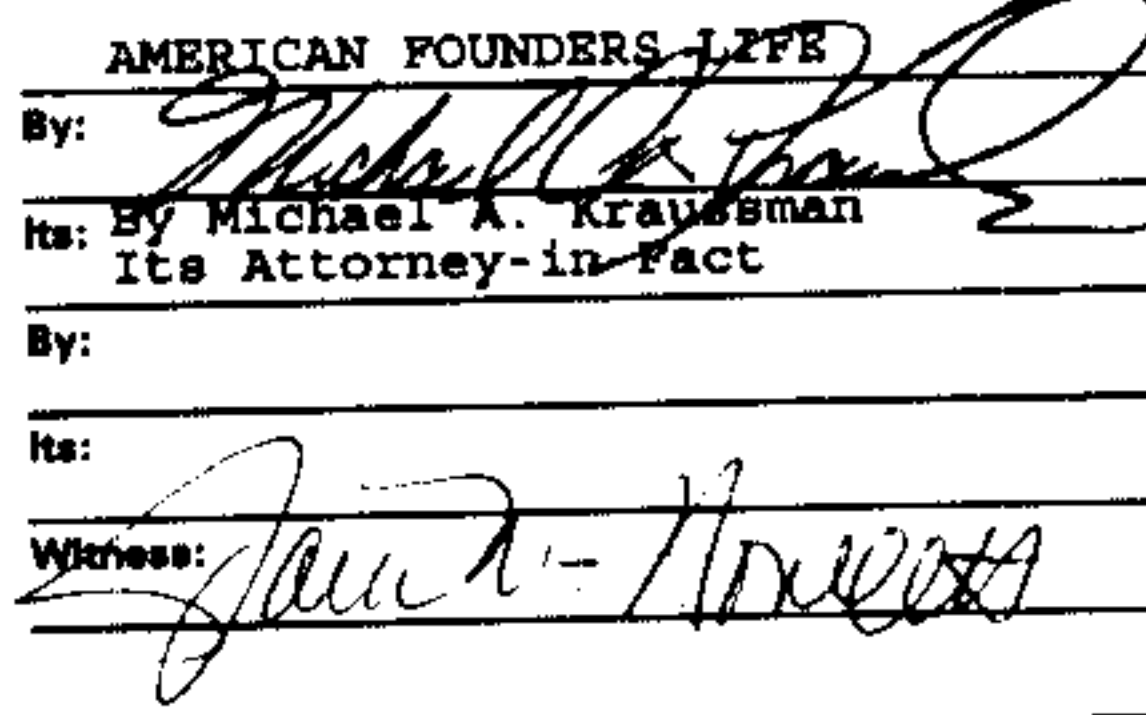 AMERICAN FOUNDERS LIFE
By: Michael A.
Its: By Michael A. Kraussman
Its Attorney-in-Fact
By:
Its:
Witness: